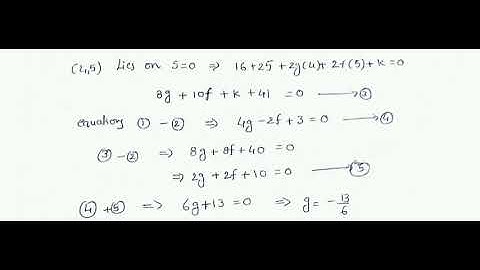 (4,5) lies on S=0 ⇒ 16+25+2g(4)+2f(5)+k=0
8g+10f+k+41 =0 → ③
equations ①-② ⇒ 4g-2f+3=0 → ④
③-② ⇒ 8g+8f+40=0
⇒ 2g+2f+10=0 → ⑤
④+⑤ ⇒ 6g+13=0 ⇒ g=-13/6